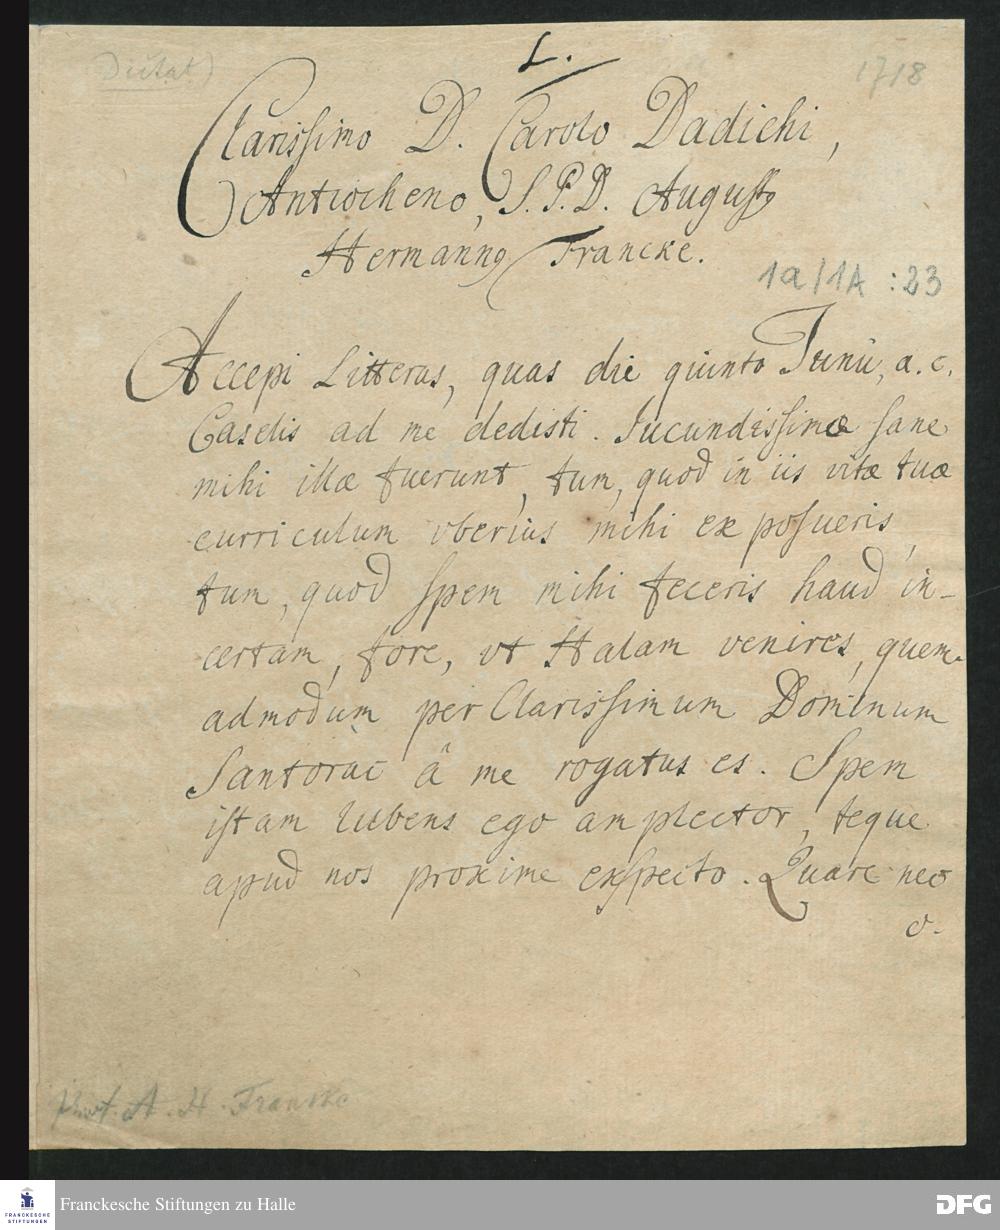 Dictat)
L.
1718
Clarissimo D. Carolo Dadichi,
Antiocheno, S. P. D. Augustq
Hermannq Francke.
1a/1A :23
Accepi Litteras, quas die quinto Junii, a. c.
Casselis ad me dedisti. Jucundissimæ sane
mihi illæ fuerunt, tum, quod in iis vitæ tuæ
curriculum vberius mihi exposueris,
tum, quod spem mihi feceris haud in-
certam, fore, vt Halam venires, quem-
admodum per Clarissimum Dominum
Santorac â me rogatus es. Spem
istam lubens ego amplector, teque
apud nos proxime exspecto. Quare neo
o-
A. H. Francke
FRANCKESCHE
STIFTUNGEN
Franckesche Stiftungen zu Halle
DFG